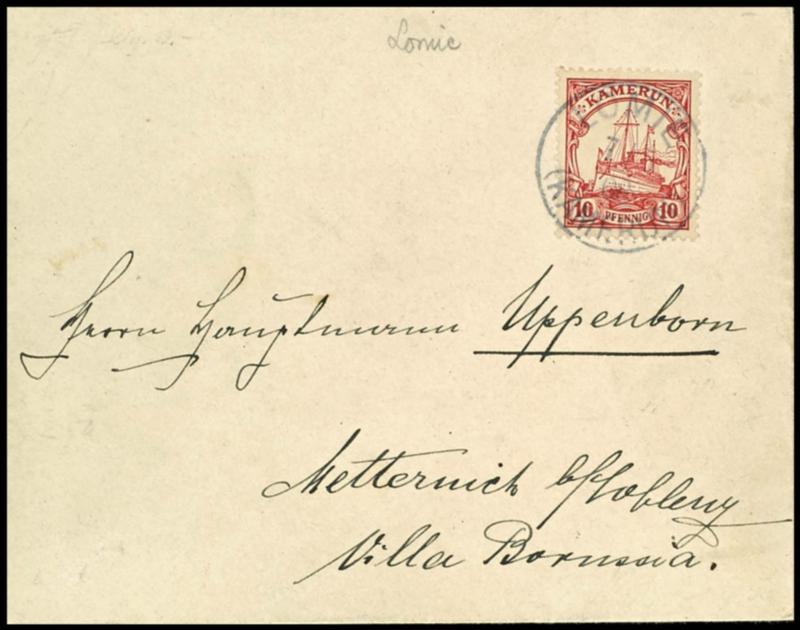 Lomie
KAMERUN
LOMIE
(KAMERUN)
10 PFENNIG 10
Herrn Hauptmann Uppenborn
Metternich b/Coblenz
Villa Borussia.